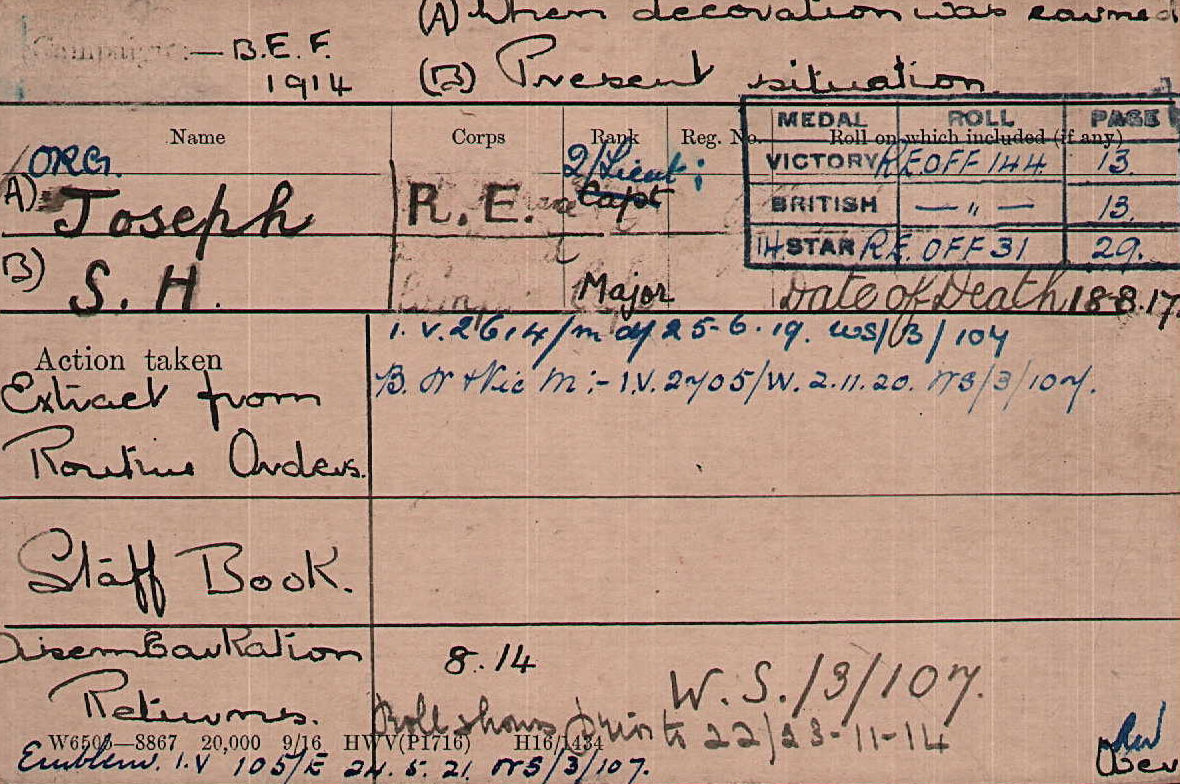 (A) When decoration was earned
Campaign:— B.E.F.
1914
(B) Present situation.
Name Corps Rank Reg. No. Roll on which included (if any)
MEDAL ROLL PAGE
ORG. 2/Lieut;
VICTORY R.E. OFF 144 13.
A) Joseph R.E. Capt
BRITISH —〃— 13.
14 STAR R.E. OFF 31 29.
B) S. H. Major Date of Death 18-8.17.
Action taken
1. V. 2614/m of 25-6.19. WS/3/107
Extract from
B. W & Vic M:- I.V. 2705/W. 2.11.20. WS/3/107.
Routine Orders.
Staff Book.
Disembarkation 8.14
Returns. W.S./3/107.
Roll shows prior to 22/23-11-14
W6506—8867 20,000 9/16 HWV(P1716) H16/1434
Emblem. I.V 105/E 24. 5. 21. WS/3/107.